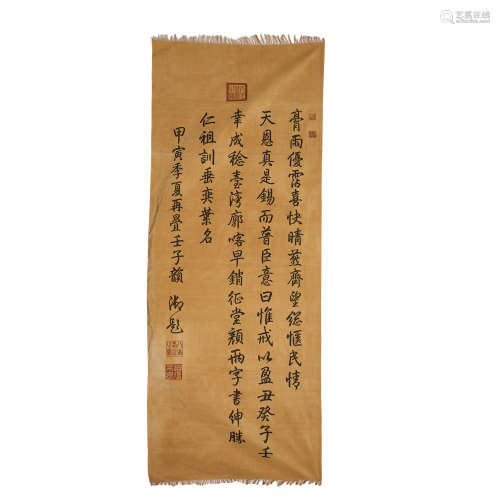 膏雨優霑喜快晴茲齊望総愜民情
天恩真是錫而普臣意曰惟戒以盈丑癸子壬
幸成稔臺灣廓喀早銷征堂顏兩字書紳勝
仁祖訓垂奕葉名
甲寅季夏再疊壬子韻 御題